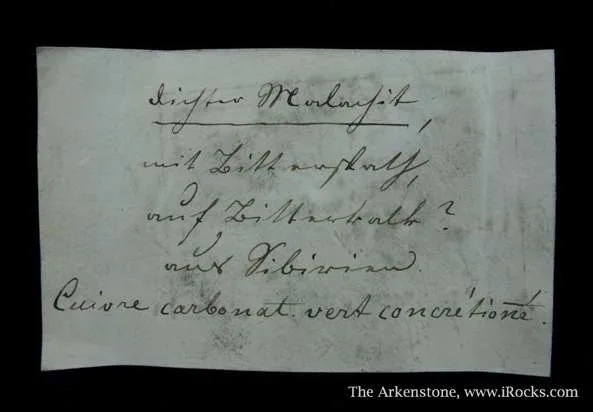 dichter Malachit,
mit Bitterspath,
auf Bitterkalk?
aus Sibirien.
Cuivre carbonat. vert concrétionné.
The Arkenstone, www.iRocks.com